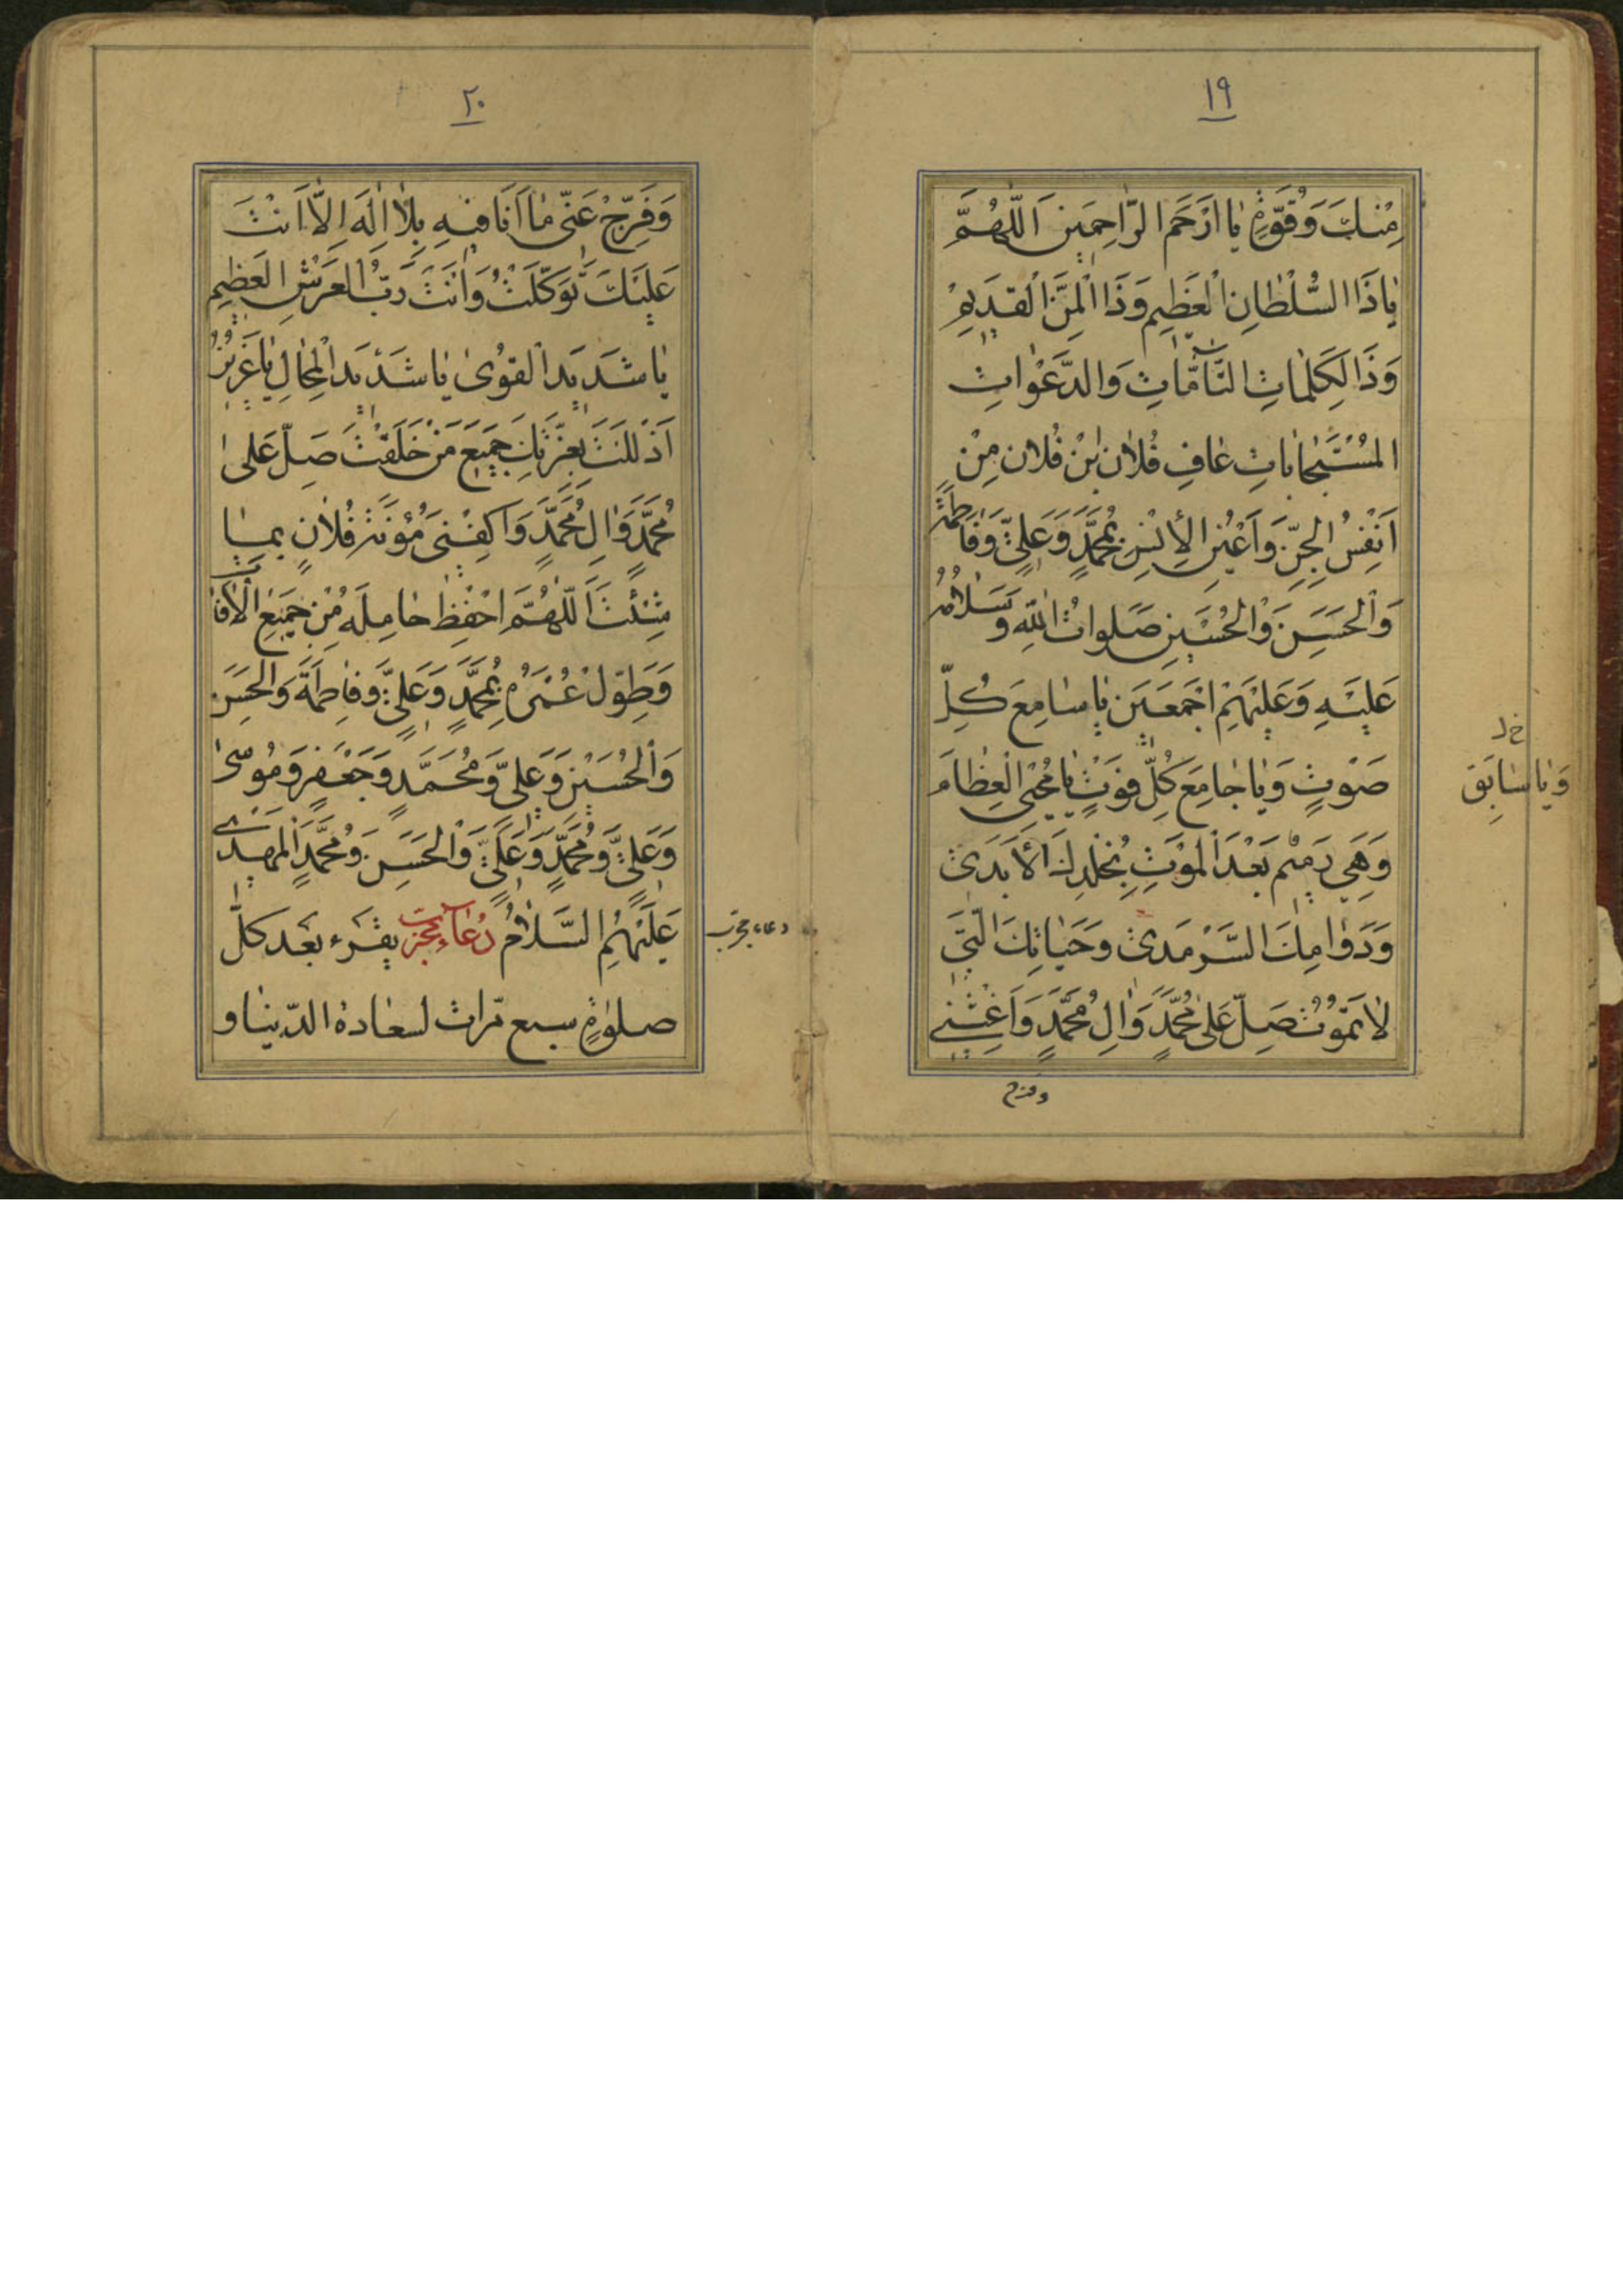 ١٩
مِنْكَ وَقُوَّةٍ يَا اَرْحَمَ الرَّاحِمِينَ اَللّهُمَّ
يَا ذَا السُّلْطانِ الْعَظيمِ وَذَا الْمَنِّ الْقَديمِ
وَذَا لكَلِماتِ التَّامَّاتِ وَالدَّعَواتِ
المُسْتَجاباتِ عافِ فُلانَ بْنَ فُلان مِنْ
اَنْفُسِ الْجِنِّ وَاَعْيُنِ الْأِنْسِ بِمُحَمَّدٍ وَعَلِيٍّ وَفاطِمَةَ
وَالْحَسَنِ وَالْحُسَيْنِ صَلَواتُ اللّهِ وَسَلامُهُ
عَلَيْهِ وَعَلَيْهِمْ اَجْمَعينَ يا سامِعَ كُلِّ
صَوْتٍ وَيا جامِعَ كُلِّ فَوْتٍ يا مُحْيِىَ الْعِظامَ
خ ل
وَيا سابِقَ
وَهِيَ رَميمٌ بَعْدَ الْمَوْتِ بِخُلْدِكَ الأَبَدىِّ
وَدَوامِكَ السَّرْمَدىِّ وَحَياتِكَ الَّتي
لا تَمُوتُ صَلِّ عَلى مُحَمَّدٍ وَالِ مُحَمَّدٍ وَاَغِثْني
وفرج
٢٠
وَفَرِّجْ عَنّي ما اَنَا فيهِ بِلا اِلهَ اِلاَّ اَنْتَ
عَلَيْكَ تَوَكَّلْتُ وَاَنْتَ رَبُّ الْعَرْشِ الْعَظيمِ
يا شَديدَ الْقُوى يا شَديدَ الْمِحالِ يا عَزيزُ
اَذْلَلْتَ بِعِزَّتِكَ جَميعَ مَنْ خَلَقْتَ صَلِّ عَلى
مُحَمَّدٍ وَالِ مُحَمَّدٍ وَاكْفِنى مَؤُنَةَ فُلانٍ بِما
شِئْتَ اَللّهُمَّ احْفِظْ حامِلَهُ مِنْ جَميعِ الْافاتِ
وَطَوِّلْ عُمْرَهُ بِمُحَمَّدٍ وَعَلِيٍّ وَفاطِمَةَ وَالْحَسَنِ
وَالْحُسَيْنِ وَعَلِيٍّ وَمُحَمَّدٍ وَجَعْفَرٍ وَمُوسى
وَعَلِيٍّ وَمُحَمَّدٍ وَعَلِيٍّ وَالْحَسَنِ وَمُحَمَّدٍ الْمَهْدىِّ
عَلَيْهِمُ السَّلامُ دُعاءِ مجرّب يقرء بعد كلّ
دعاء مجرّب
صلوةٍ سبع مّرات لسعادة الدّنيا و